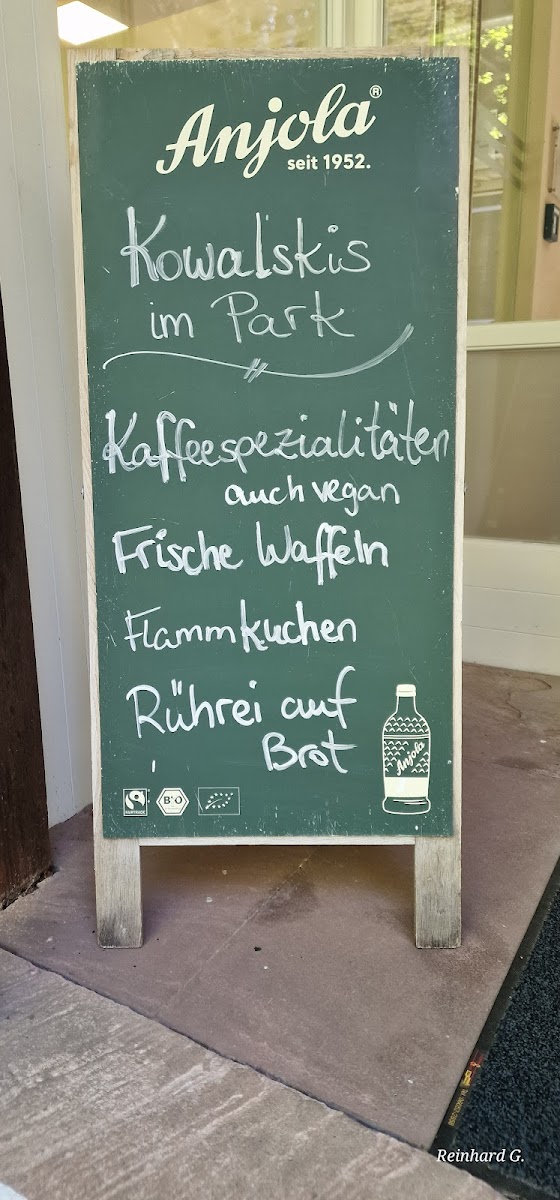 Anjola®
seit 1952.
Kowalskis
im Park
Kaffeespezialitäten
auch vegan
Frische Waffeln
Flammkuchen
Rührei auf
Brot
Anjola
FAIRTRADE
BIO
Reinhard G.